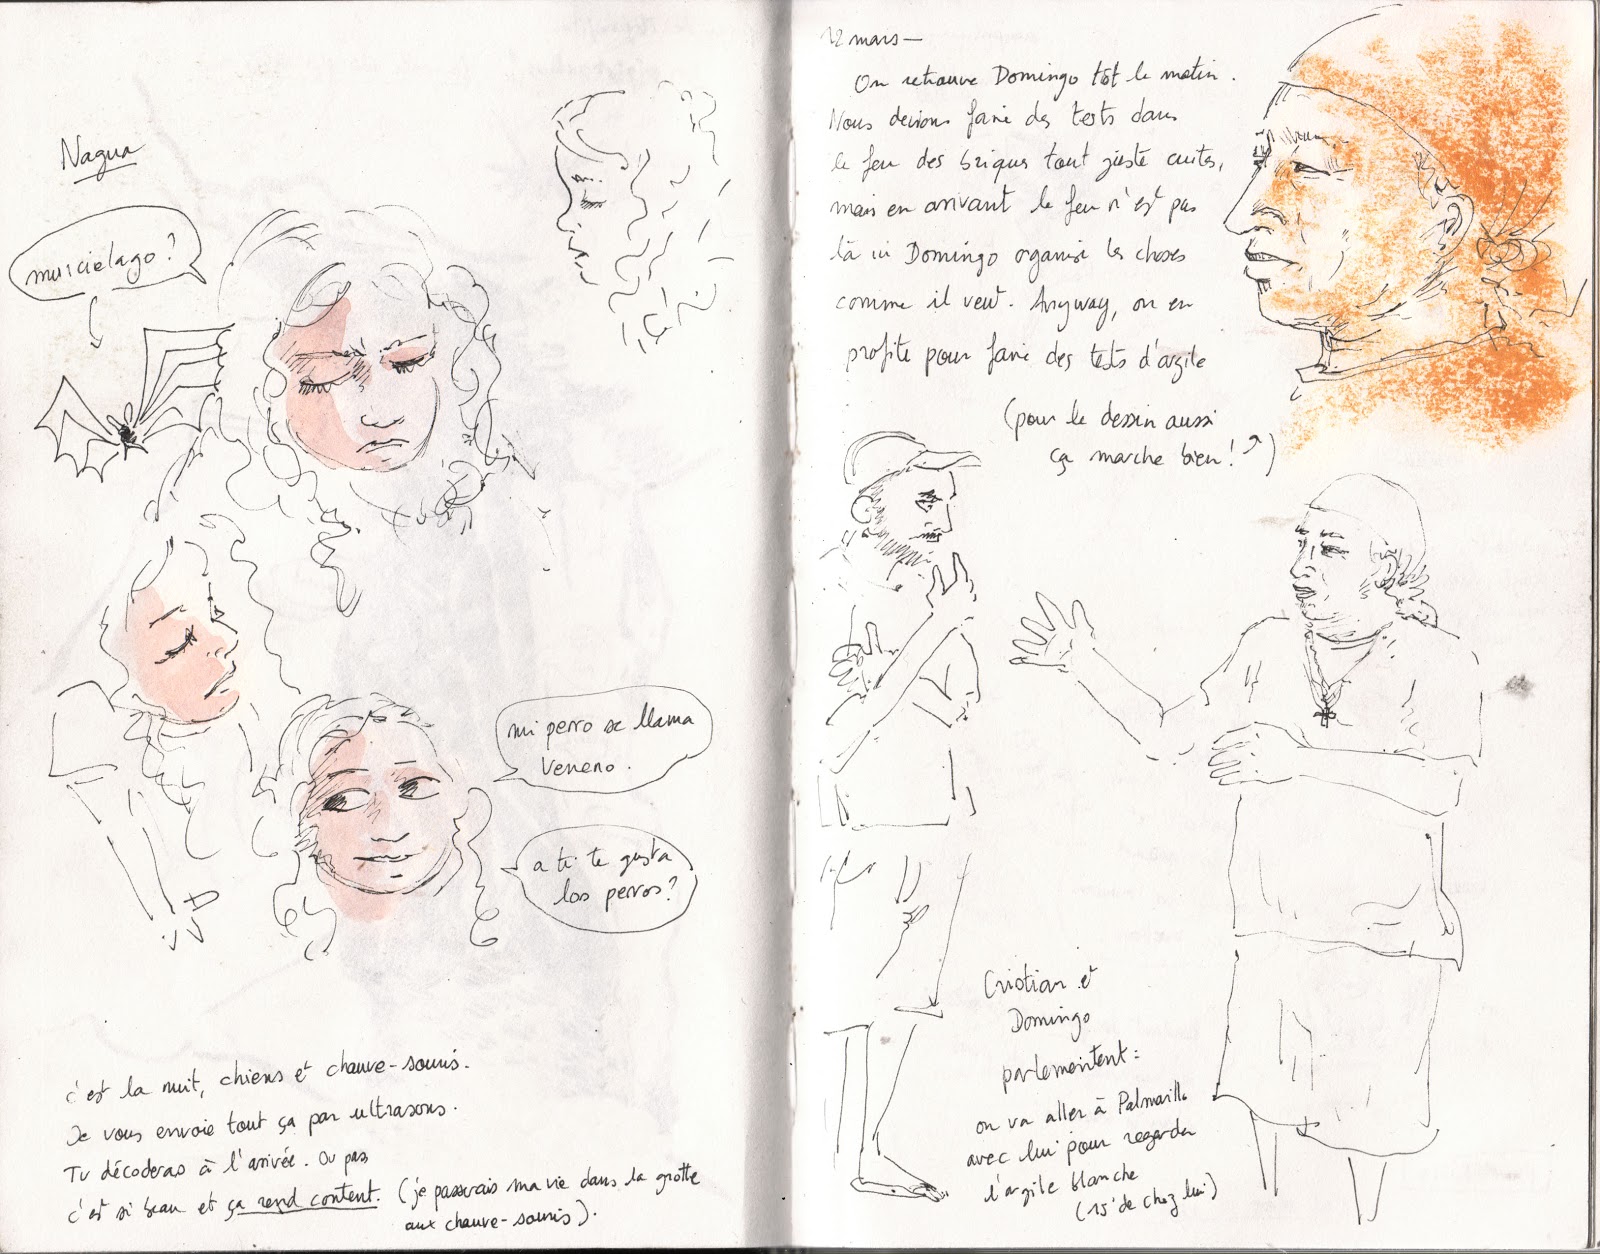 Nagua
murciélago?
mi perro se llama
veneno.
a ti te gusta
los perros?
c'est la nuit, chiens et chauve-souris.
Je vous envoie tout ça par ultrasons.
Tu décoderas à l'arrivée. Ou pas
c'est si beau et ça rend content. (je passerais ma vie dans la grotte
aux chauve-souris).
12 mars —
On retrouve Domingo tôt le matin.
Nous devions faire des tests dans
le feu des briques tout juste cuites,
mais en arrivant le feu n'est pas
là ici Domingo organise les choses
comme il veut. Anyway, on en
profite pour faire des tests d'argile
(pour le dessin aussi
ça marche bien!↗)
Cristian et
Domingo
parlementent:
on va aller à Palmarillo
avec lui pour regarder
l'argile blanche
(15' de chez lui)